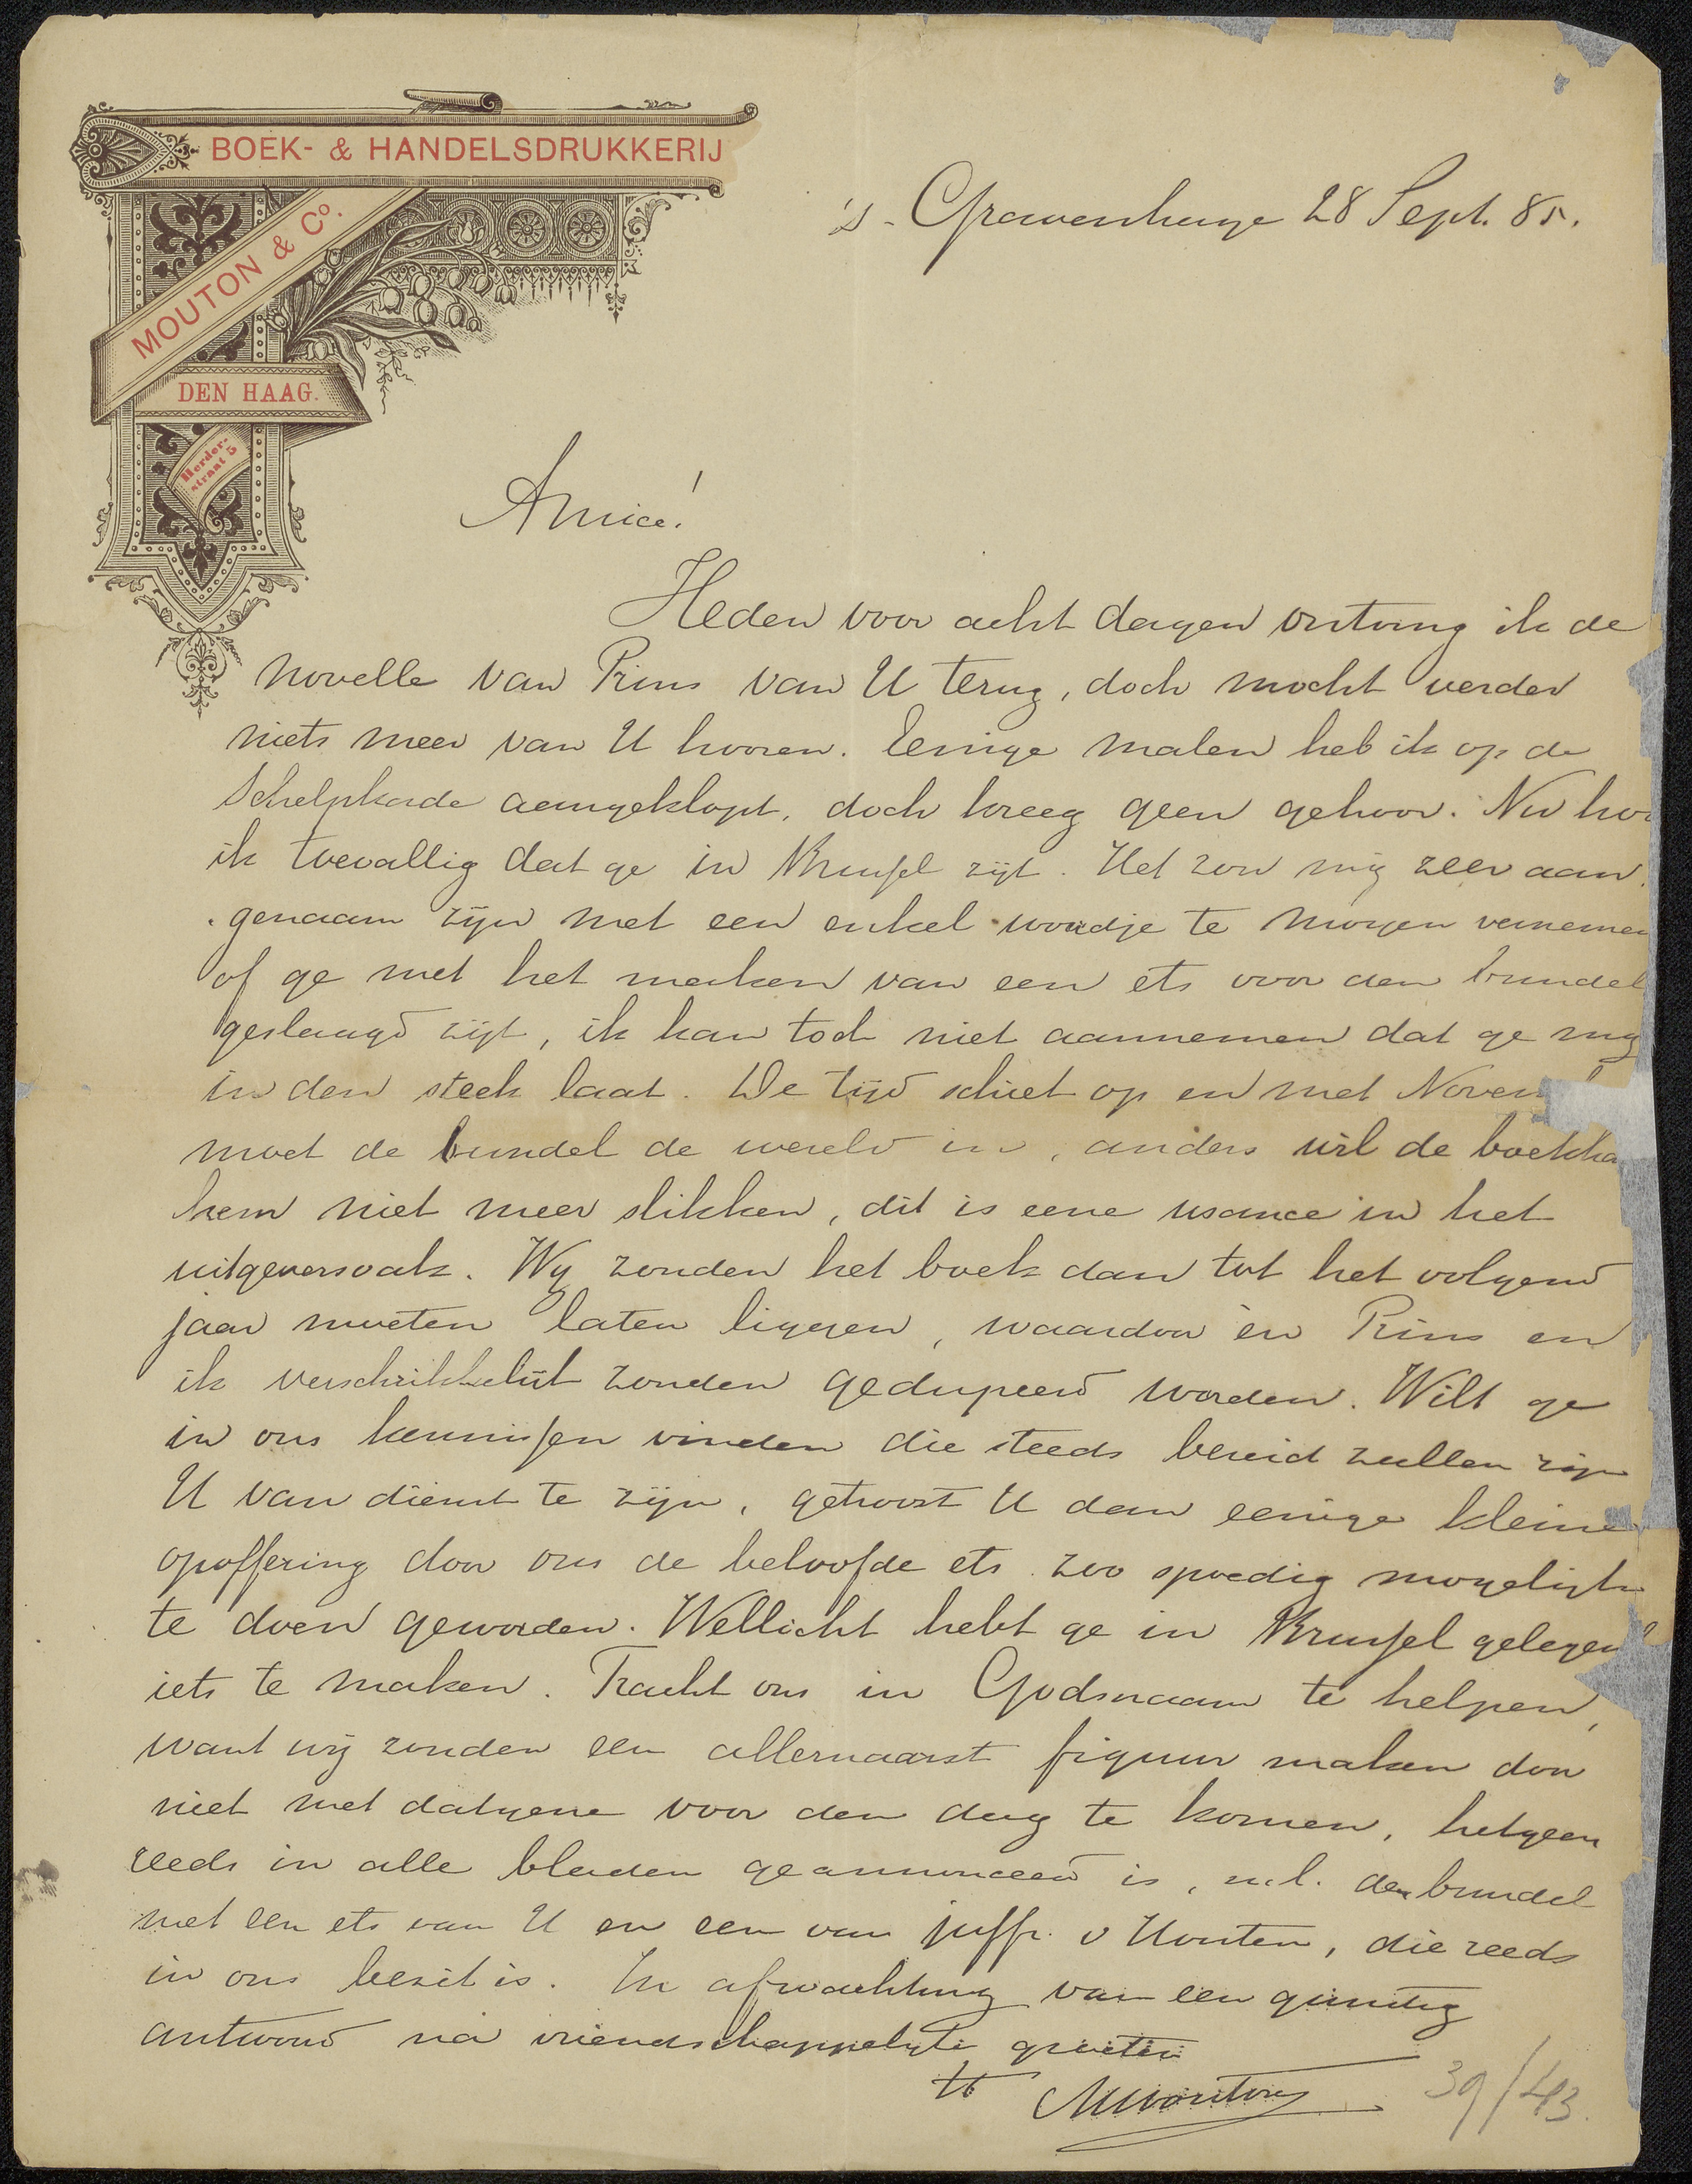 BOEK- & HANDELSDRUKKERIJ
MOUTON & Co.
DEN HAAG.
Herder-
straat 5
's-Gravenhage 28 Sept. 85.
Amice!
Heden voor acht dagen ontving ik de
novelle van Prins van U terug, doch mocht verder
niets meer van U hooren. Eenige malen heb ik op de
Schelpkade aangeklopt, doch kreeg geen gehoor. Nu hoo
ik toevallig dat ge in Brussel zijt. Het zou mij zeer aan-
genaam zijn met een enkel woordje te mogen vernemen
of ge met het maken van een ets voor den bundel
geslaagd zijt, ik kan toch niet aannemen dat ge mij
in den steek laat. De tijd schiet op en met Novem
moet de bundel de wereld in, anders wil de boekha
hem niet meer slikken, dit is eene usance in het
uitgeversvak. Wij zouden het boek dan tot het volgend
jaar moeten laten liggen, waardoor èn Prins en
ik verschrikkelijk zouden gedupeerd worden. Wilt ge
in ons kennissen vinden die steeds bereid zullen zijn
U van dienst te zijn, getroost U dan eenige kleine
opoffering door ons de beloofde ets zoo spoedig mogelijk
te doen geworden. Wellicht hebt ge in Brussel gelegen
iets te maken. Tracht ons in Godsnaam te helpen,
want wij zouden een allernaarst figuur maken door
niet met datgene voor den dag te komen, hetgeen
reeds in alle bladen geannonceerd is, n.l. den bundel
met een ets van U en een van juffr. v Houten, die reeds
in ons bezit is. In afwachting van een gunstig
antwoord na vriendschappelijke groeten
tt Mouton
39/43.